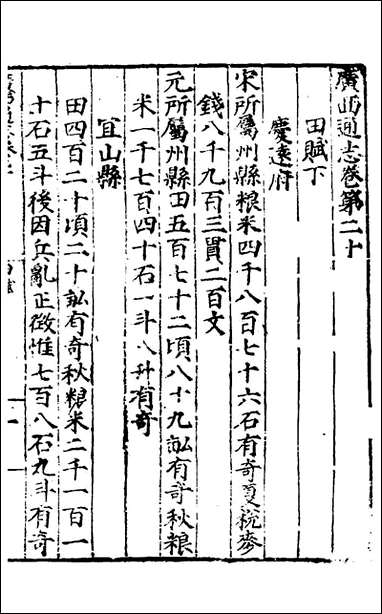 廣西通志卷第二十
田賦下
慶遠府
宋所屬州縣粮米四千八百七十六石有奇夏稅麥
錢八千九百三貫二百文
元所屬州縣田五百七十二頃八十九畆有奇秋粮
米一千七百四十石一斗八升有奇
宜山縣
田四百二十頃二十畆有奇秋粮米二千一百一
十石五斗後因兵亂正徵惟七百八石九斗有奇